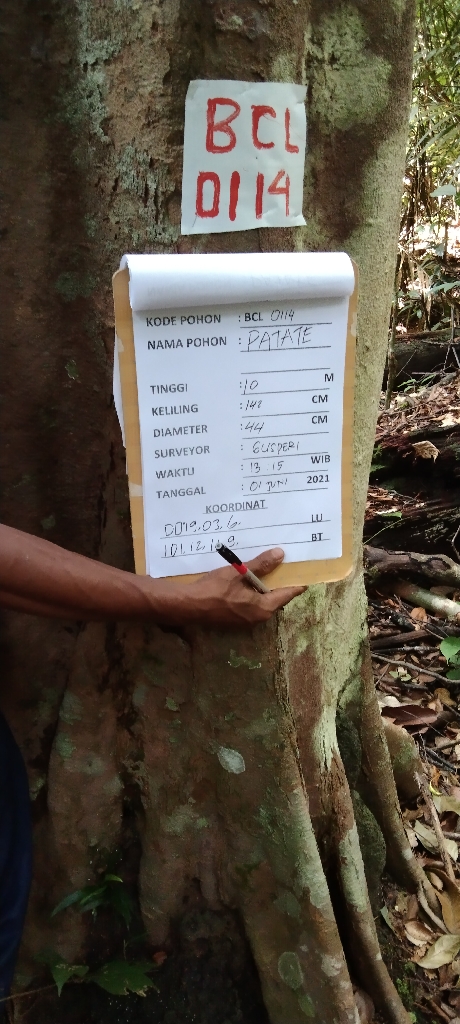 BCL
0114
KODE POHON : BCL 0114
NAMA POHON : PATATE
TINGGI : 10 M
KELILING : 142 CM
DIAMETER : 44 CM
SURVEYOR : GUSPERI
WAKTU : 13 15 WIB
TANGGAL : 01 JUNI 2021
KOORDINAT
0019.03.6. LU
101.12. BT